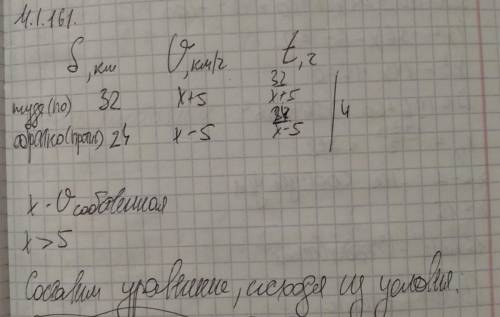 М.1.161.
S, км   V, км/ч   t, ч
туда (по)   32   x+5   32/x+5
обратно (прот)   24   x-5   24/x-5   | 4
x - V собственная
x > 5
Составим уравнение, исходя из условия: